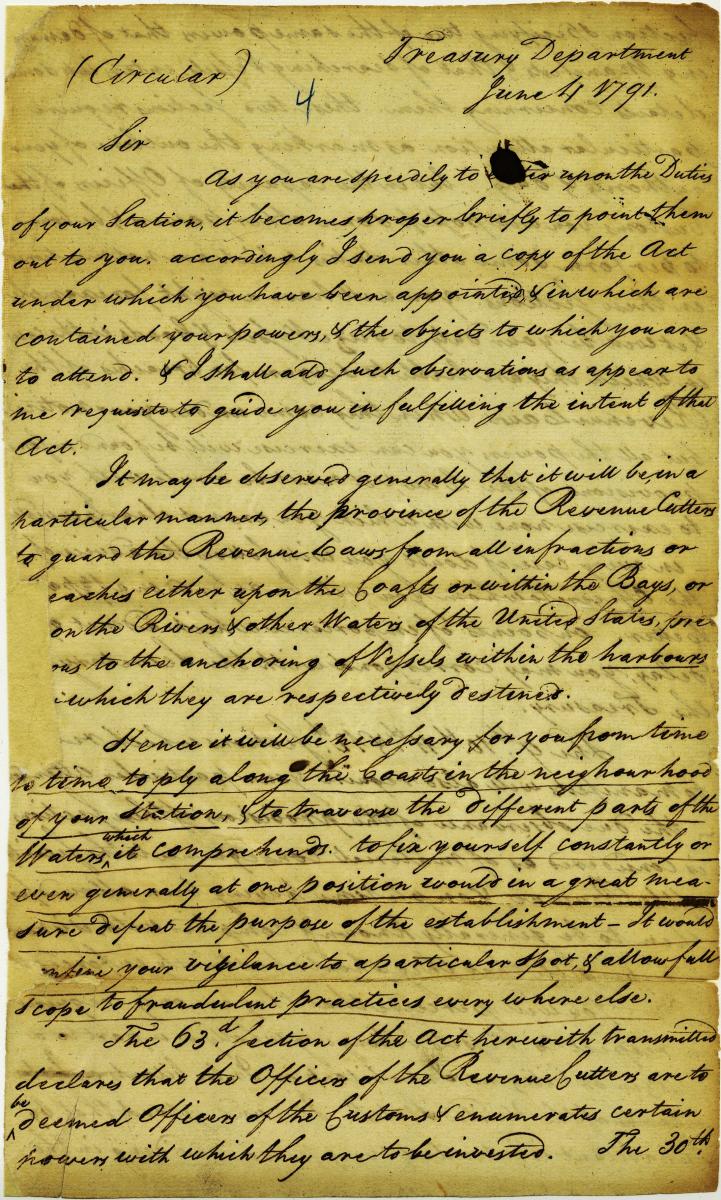 (Circular)
Treasury Department
June 4 1791.
4
Sir
As you are speedily to upon the Duties
of your Station, it becomes proper briefly to point them
out to you. accordingly I send you a copy of the Act
under which you have been appointed, & in which are
contained your powers, & the objects to which you are
to attend. & I shall add such observations as appear to
me requisite to guide you in fulfilling the intent of that
Act.
It may be observed generally that it will be, in a
particular manner, the province of the Revenue Cutters
to guard the Revenue Laws from all infractions or
eaches either upon the Coasts or within the Bays, or
on the Rivers & other Waters of the United States, pre
us to the anchoring of Vessels within the harbours
which they are respectively destined.
Hence it will be necessary for you from time
to time to ply along the Coasts in the neighourhood
of your Station, & to traverse the different parts of the
Waters, which it comprehends. to fix yourself constantly or
even generally at one position would in a great mea-
sure defeat the purpose of the establishment - It would
nfine your vigilance to a particular spot, & allow full
scope to fraudulent practices every where else.
The 63.d Section of the Act herewith transmitted
declares that the Officers of the Revenue Cutters are to
be deemed Officers of the Customs & enumerates certain
powers with which they are to be invested. The 30th.